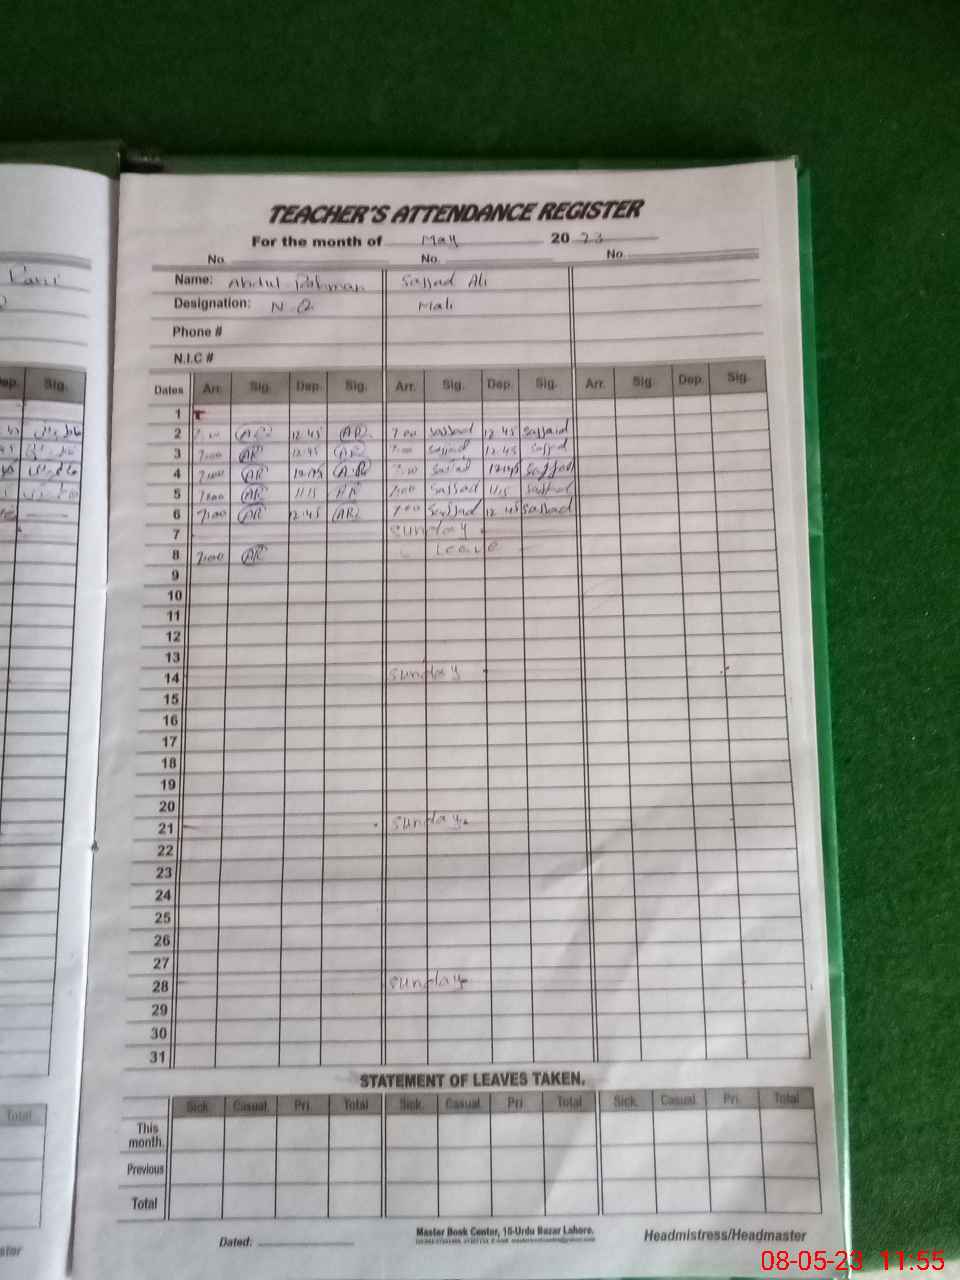 TEACHER'S ATTENDANCE REGISTER
For the month of May 2023
No. No. No.
Name: Abdul Rahman Sajjad Ali
Designation: N.Q Mali
Phone #
N.I.C #
Dep. Sig.
Dates Arr. Sig. Dep. Sig. Arr. Sig. Dep. Sig. Arr. Sig. Dep. Sig.
1
2 7:00 AR 12:45 AR 7:00 sajjad 12:45 sajjad
3 7:00 AR 12:45 AR 7:00 sajjad 12:45 sajjad
4 7:00 AR 12:45 AR 7:00 sajjad 12:45 sajjad
5 7:00 AR 11:15 AR 7:00 sajjad 11:15 sajjad
6 7:00 AR 12:45 AR 7:00 sajjad 12:45 sajjad
7 sunday
8 7:00 AR Leave
9
10
11
12
13
14 sunday
15
16
17
18
19
20
21 sunday
22
23
24
25
26
27
28 sunday
29
30
31
STATEMENT OF LEAVES TAKEN.
Total
Sick. Casual. Pri. Total Sick. Casual. Pri. Total Sick. Casual. Pri. Total
This month.
Previous
Total
Dated:
Master Book Center, 15-Urdu Bazar Lahore.
Headmistress/Headmaster
08-05-23 11:55